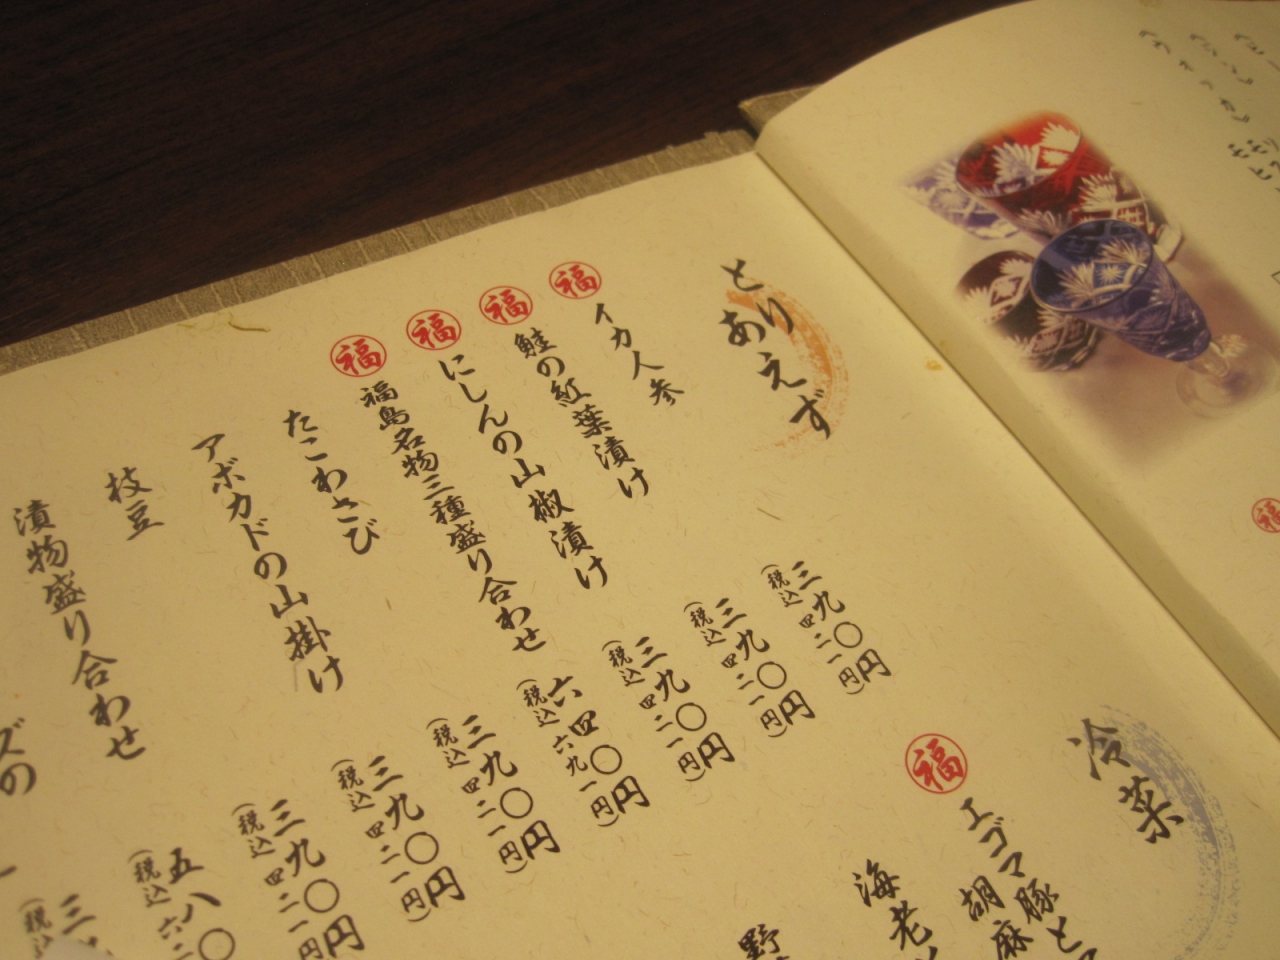 とりあえず
福 イカ人参 三九〇円
(税込四二一円)
福 鮭の紅葉漬け 三九〇円
(税込四二一円)
福 にしんの山椒漬け 三九〇円
(税込四二一円)
福 福島名物三種盛り合わせ 六四〇円
(税込六九一円)
たこわさび 三九〇円
(税込四二一円)
アボカドの山掛け 三九〇円
(税込四二一円)
枝豆 三九〇円
(税込四二一円
漬物盛り合わせ 五八〇
(税込六二
ズの 三
(税込
冷菜
福 エゴマ豚と
胡麻
海老
野
福